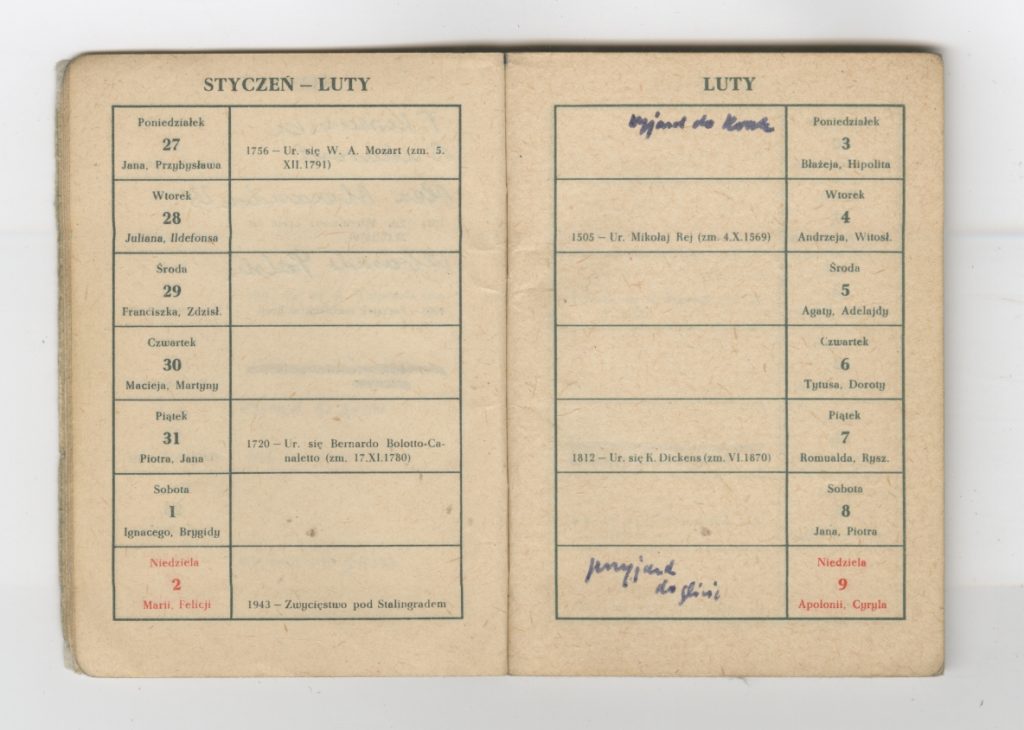 STYCZEŃ – LUTY
Poniedziałek
27
Jana, Przybysława
1756 – Ur. się W. A. Mozart (zm. 5.
XII.1791)
Wtorek
28
Juliana, Ildefonsa
Środa
29
Franciszka, Zdzisł.
Czwartek
30
Macieja, Martyny
Piątek
31
Piotra, Jana
1720 – Ur. się Bernardo Bolotto-Ca-
naletto (zm. 17.XI.1780)
Sobota
1
Ignacego, Brygidy
Niedziela
2
Marii, Felicji
1943 – Zwycięstwo pod Stalingradem
LUTY
wyjazd do
Poniedziałek
3
Błażeja, Hipolita
Wtorek
4
Andrzeja, Witosł.
1505 – Ur. Mikołaj Rej (zm. 4.X.1569)
Środa
5
Agaty, Adelajdy
Czwartek
6
Tytusa, Doroty
Piątek
7
Romualda, Rysz.
1812 – Ur. się K. Dickens (zm. VI.1870)
Sobota
8
Jana, Piotra
przyjazd
do
Niedziela
9
Apolonii, Cyryla